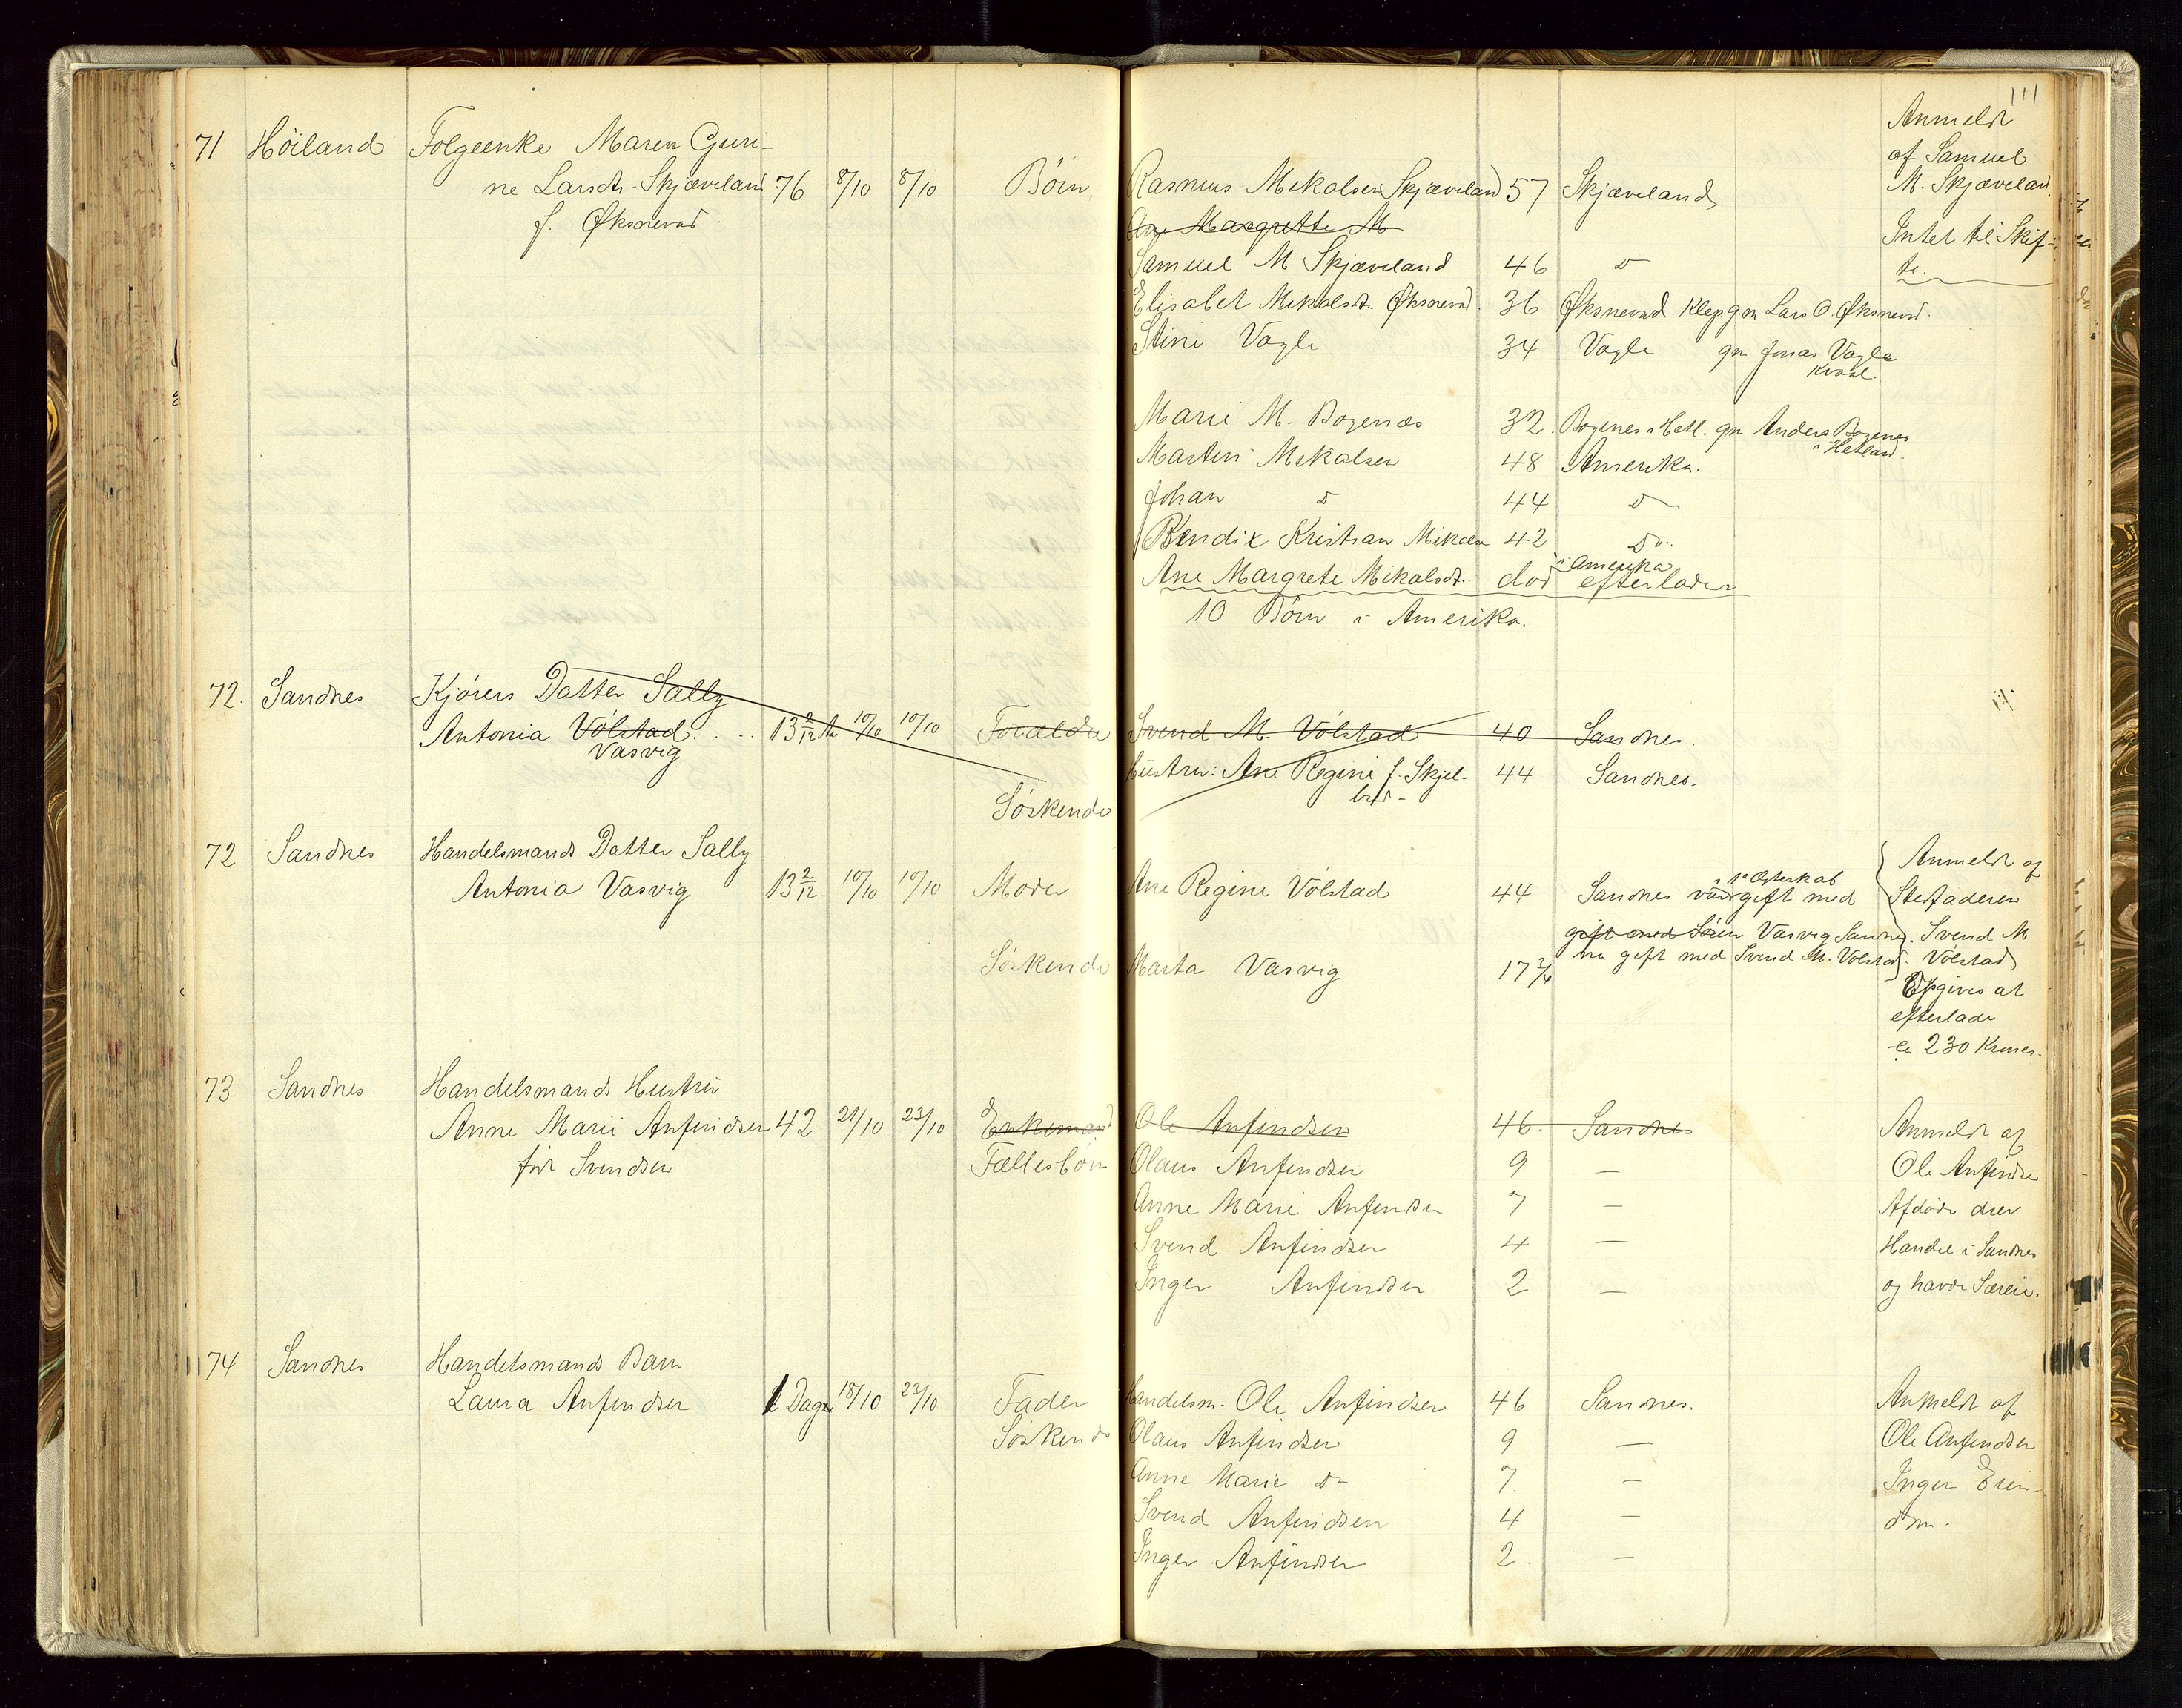 111
71 Höiland Folgeenke Maren Guri-
ne Larsdtr Skjæveland 76 8/10 8/10 Börn Rasmus Mikalsen Skjæveland 57 Skjæveland
f. Øksnevad
Anmeldt
af Samuel
M. Skjæveland.
Intet til Skif-
te.
Ane Margrette M
Samuel M Skjæveland 46 D
Elisabet Mikalsdtr. Øksnevad. 36 Øksnevad Klep gm Lars O. Øksnevad.
Stine Vagle 34 Vagle gm Jonas Vagle
Marie M. Bogenæs 32. Bogenes i Hetl. gm Anders Bogenes
i Hetland.
Martin Mikalsen 48 Amerika.
Johan D 44 D
Bendix Kristian Mikalsen 42 Do.
Ane Margrete Mikalsdtr. död i Amerika efterlader
10 Börn i Amerika.
72. Sandnes Kjörers Datter Sally
Antonia Völstad 13 2/12 10/10 10/10 Forældre Svend M. Völstad 40 Sandnes.
Vasvig
Hustru: Ane Regine f. Skjel-
bred- 44 Sandnes.
Söskende
72 Sandnes Handelsmands Datter Sally
Antonia Vasvig 13 2/12 10/10 10/10 Moder Ane Regine Völstad 44 Sandnes var i 1ste Ægteskab gift med
gift med Sören Vasvig Sandnes.
nu gift med Svend M. Völstad.
Söskende Marta Vasvig 17 3/4
Anmeldt af
Stedfaderen
Svend M
Völstad
Opgives at
efterlade
ca 230 Kroner.
73 Sandnes Handelsmands Hustru
Anne Marie Anfindsen 42 21/10 23/10 Enkemand Ole Anfindsen 46. Sandnes
föd Svendsen Fællesbörn Olaus Anfindsen 9 —
Anne Marie Anfindsen 7 —
Svend Anfindsen 4 —
Inger Anfindsen 2 —
Anmeldt af
Ole Anfindsen
Afdöde drev
Handel i Sandnes
og havde Særeie.
74 Sandnes Handelsmands Barn
Laura Anfindsen 1 Dage 18/10 23/10 Fader Handelsm. Ole Anfindsen 46 Sandnes.
Söskende Olaus Anfindsen 9 —
Anne Marie Do 7 —
Svend Anfindsen 4 —
Inger Anfindsen 2. —
Anmeldt af
Ole Anfindsen
Ingen Eien-
dom.